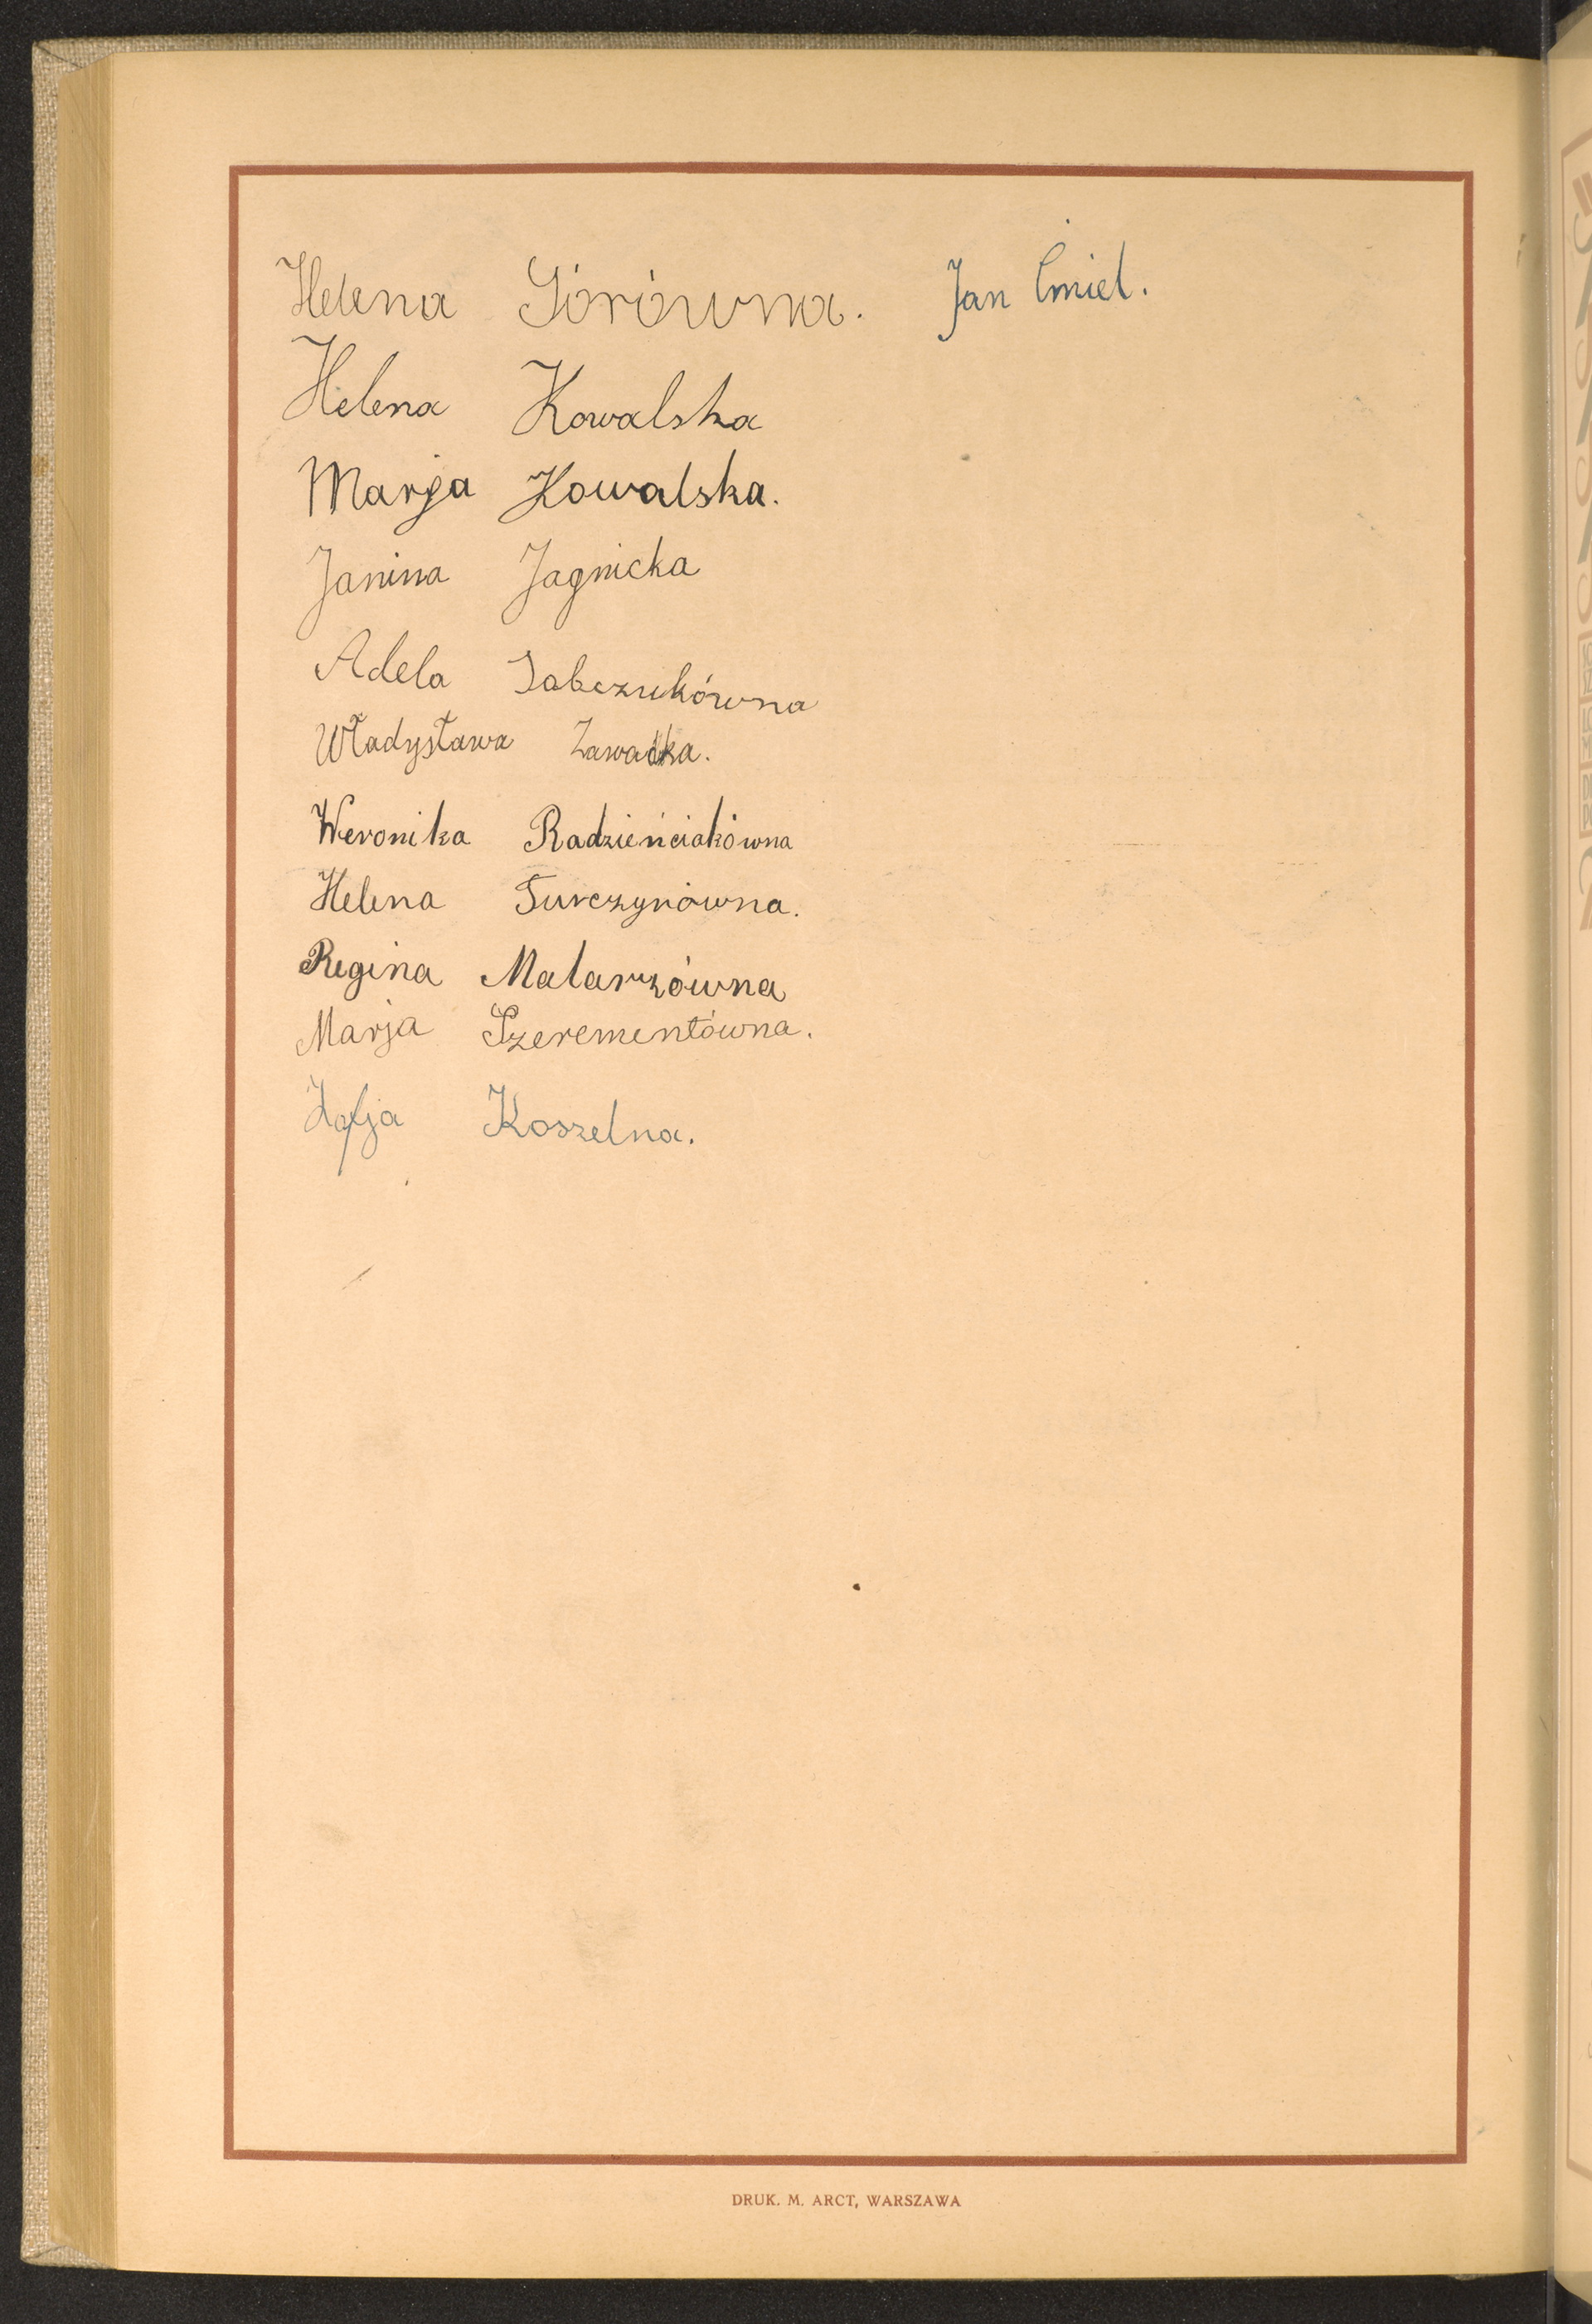 Helena Górówna.
Helena Kowalska
Marja Kowalska.
Janina Jagnicka
Adela Jabczukówna
Władysława Zawadka.
Weronika Radzieńciakówna
Helena Turczynówna.
Regina Malarzówna
Marja Szerementówna.
Zofja Koszelna.
Jan Ćmiel.
DRUK. M. ARCT, WARSZAWA